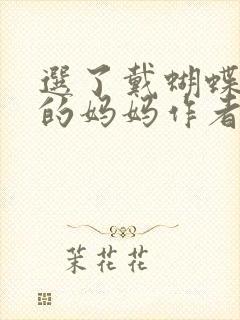 選了戴蝴蝶
的妈妈作者
茉花花